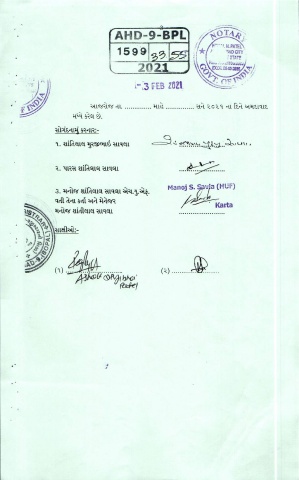 AHD-9-BPL
1599 33 55
2021
NOTARY
GOVT. OF INDIA
3 FEB 2021
આજરોજ તા. .............. માહે .............. સને ૨૦૨૧ ના દિને અમદાવાદ
મધ્યે કરેલ છે.
સોગંદનામું કરનાર:-
૧. શાંતિલાલ મુરજીભાઇ સાવલા
૨. પારસ શાંતિલાલ સાવલા
૩. મનોજ શાંતિલાલ સાવલા એચ.યુ.એફ.
વતી તેના કર્તા અને મેનેજર
મનોજ શાંતીલાલ સાવલા
Manoj S. Savla (HUF)
Karta
સાક્ષીઓ:-
(૧) ..............
(૨) ..............
Patel